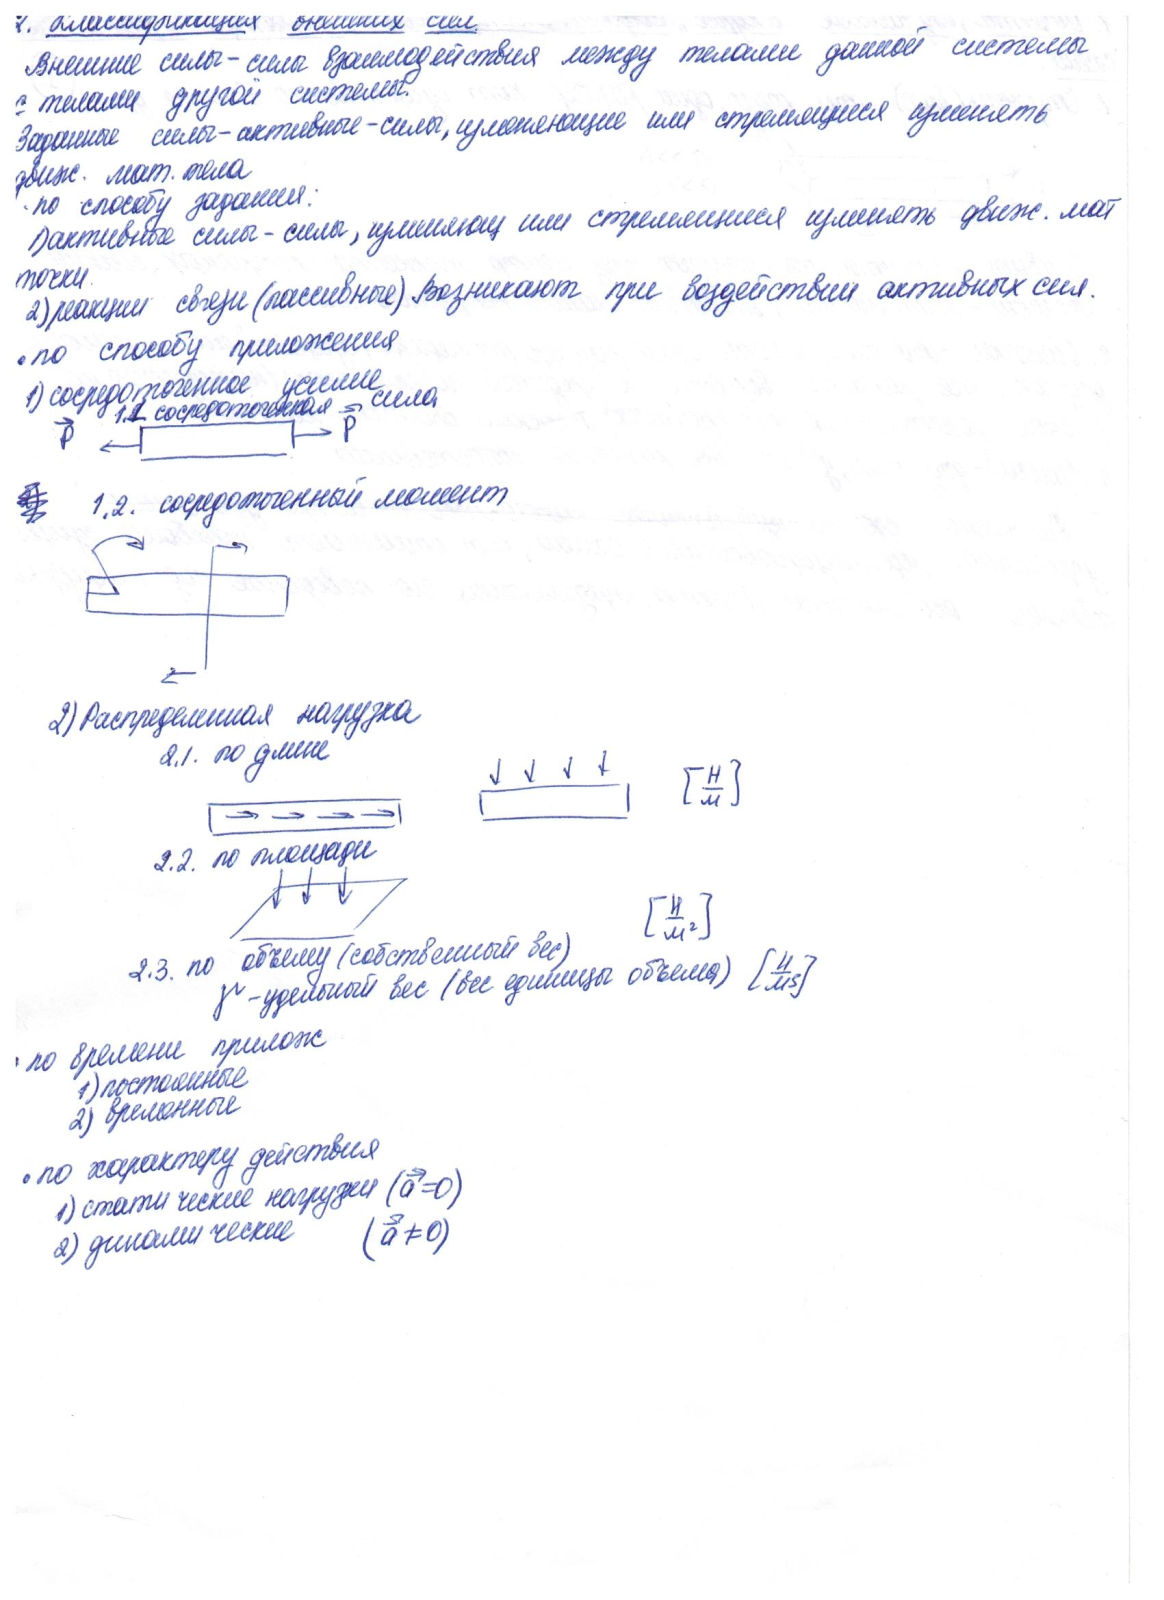 . Классификация внешних сил.
Внешние силы - силы взаимодействия между телами данной системы
с телами другой системы.
Заданные силы - активные - силы, изменяющие или стремящиеся изменять
движ. мат. тела
· по способу задания:
1) активные силы - силы, изменяющ или стремящиеся изменять движ. мат
точки.
2) реакции связи (пассивные) Возникают при воздействии активных сил.
• по способу приложения
1) сосредоточенное усилие
1.1 сосредоточенная сила
P P
1.2. сосредоточенный момент
2) Распределенная нагрузка
2.1. по длине
[Н/м]
2.2. по площади
[Н/м²]
2.3. по объему (собственный вес)
γ - удельный вес (вес единицы объема) [Н/м3]
· по времени прилож
1) постоянные
2) временные
• по характеру действия
1) статические нагрузки (a⃗=0)
2) динамические (a⃗≠0)